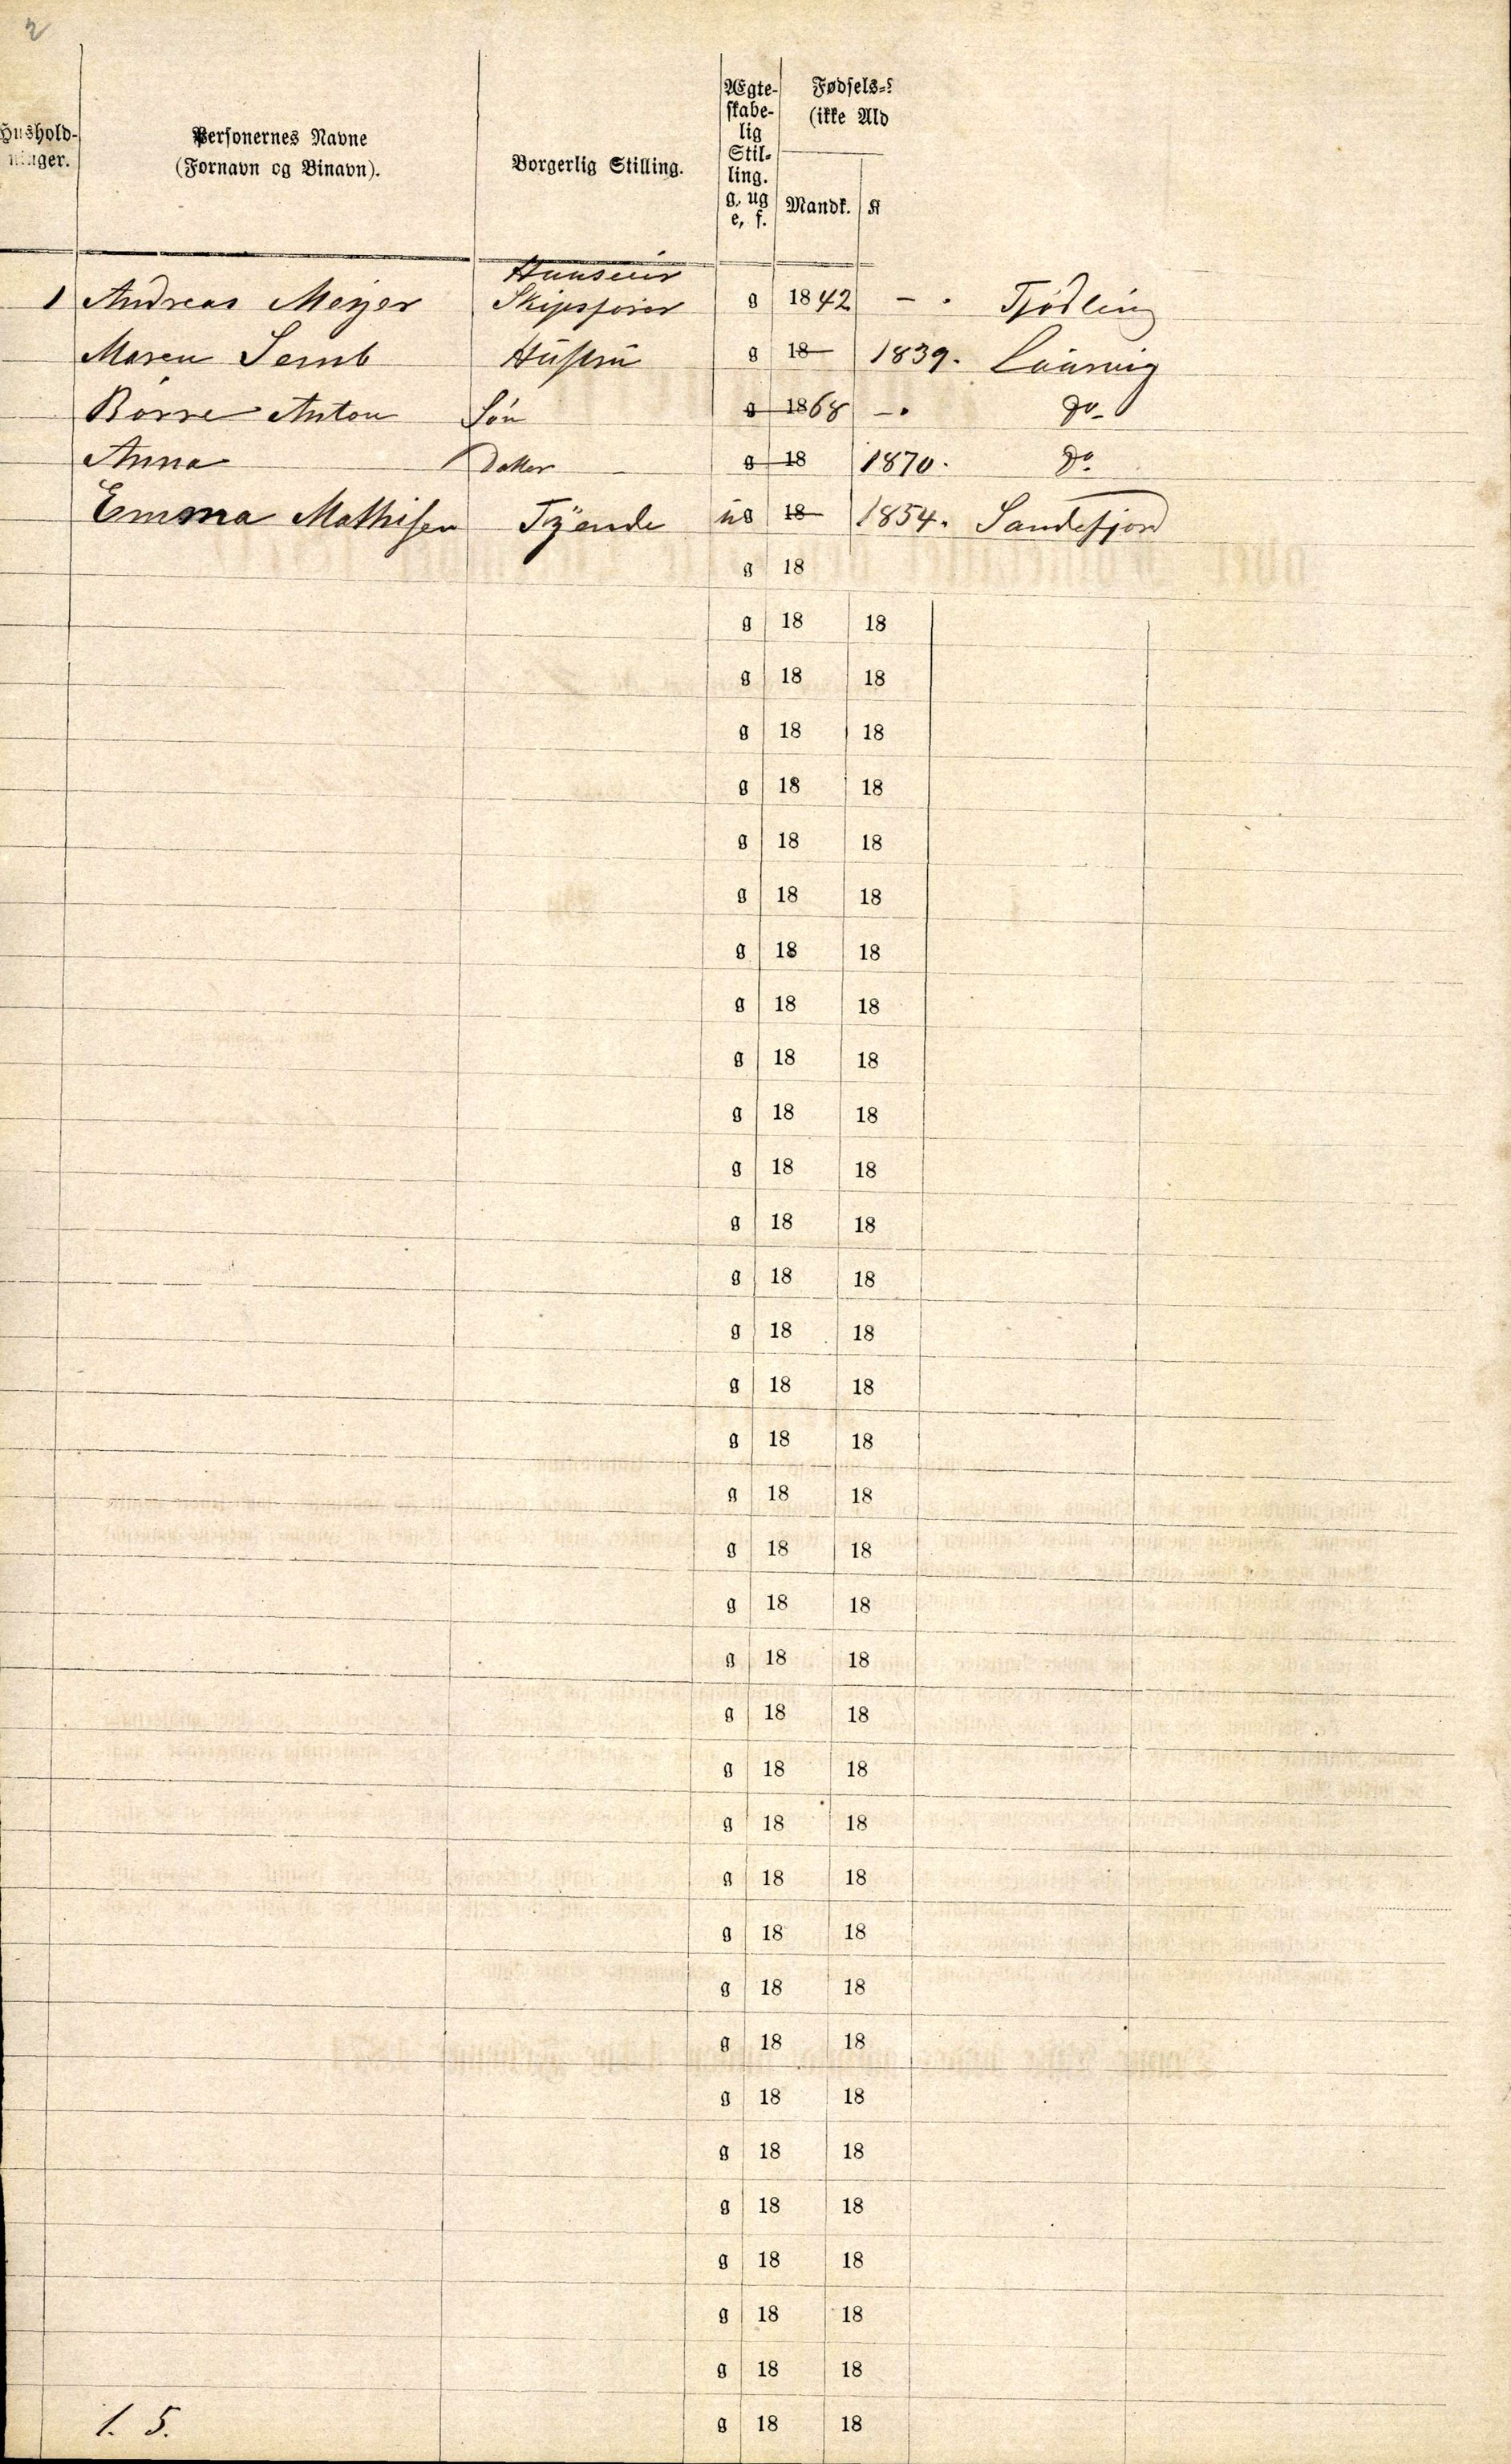 2
Hushold-
ninger.
Personernes Navne
(Fornavn og Binavn).
Borgerlig Stilling.
Ægte-
skabe-
lig
Stil-
ling.
g, ug
e, f.
Fødsels-
(ikke Ald
Mandk.
K
Huuseier
1 Andreas Meyer Skipsfører g 1842 - . Tjødling
Maren Semb Hustru g 18 1839. Laurvig
Børre Anton Søn g 1868 - . Do
Anna Datter g 18 1870. Do
Emma Mathisen Tyende ug 18 1854. Sandefjord
g 18
g 18 18
g 18 18
g 18 18
g 18 18
g 18 18
g 18 18
g 18 18
g 18 18
g 18 18
g 18 18
g 18 18
g 18 18
g 18 18
g 18 18
g 18 18
g 18 18
g 18 18
g 18 18
g 18 18
g 18 18
g 18 18
g 18 18
g 18 18
g 18 18
g 18 18
g 18 18
g 18 18
g 18 18
g 18 18
g 18 18
g 18 18
g 18 18
g 18 18
1. 5. g 18 18